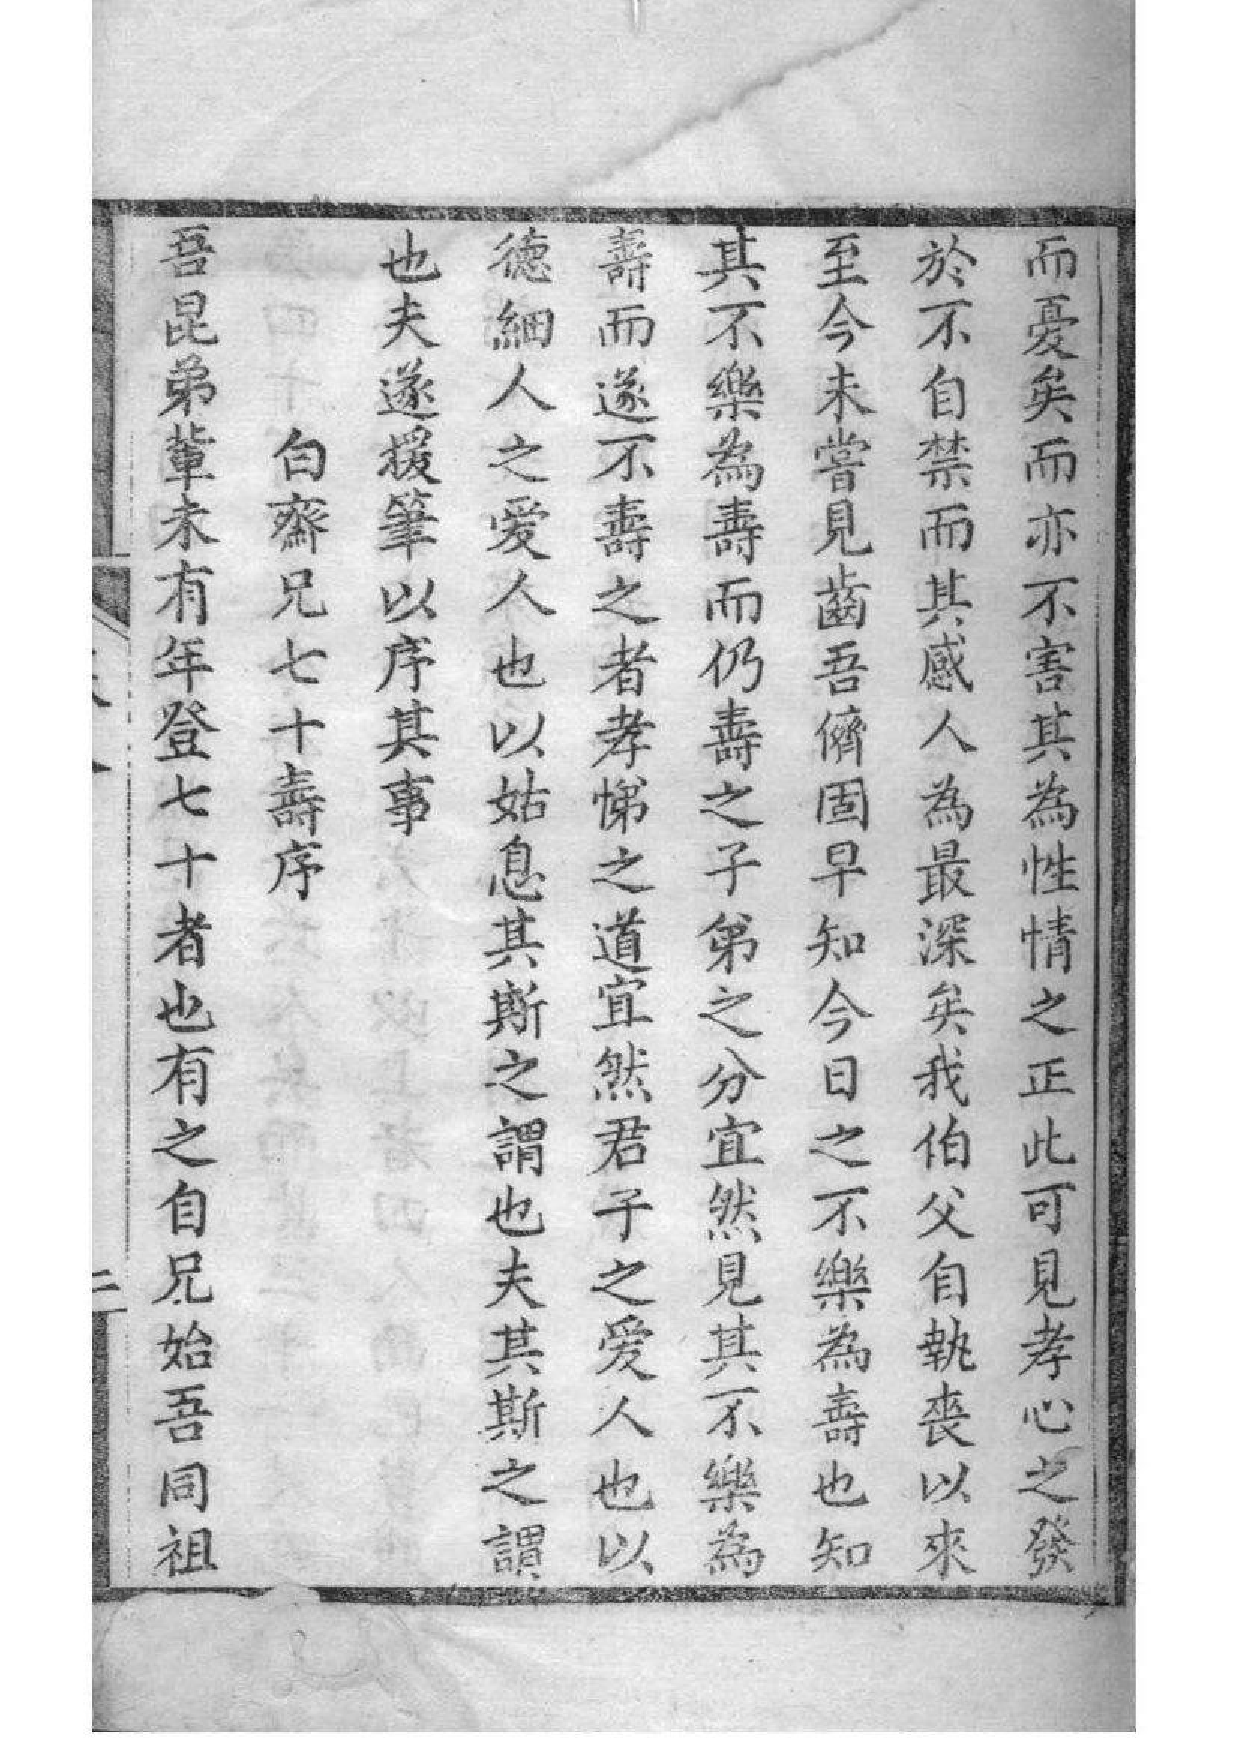 而憂矣而亦不害其為性情之正此可見孝心之發
於不自禁而其感人為最深矣我伯父自執喪以來
至今未嘗見齒吾儕固早知今日之不樂為壽也知
其不樂為壽而仍壽之子弟之分宜然見其不樂為
壽而遂不壽之者孝悌之道宜然君子之爱人也以
德細人之爱人也以姑息其斯之謂也夫其斯之謂
也夫遂援筆以序其事
白齋兄七十壽序
吾昆弟輩未有年登七十者也有之自兄始吾同祖
二